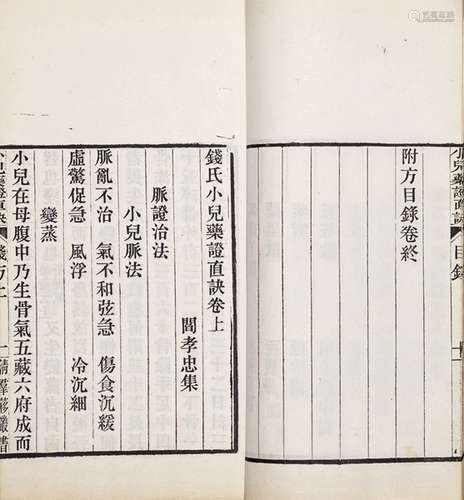 小兒藥證直訣
目錄
附方目錄卷終
錢氏小兒藥證直訣卷上
閻孝忠集
脈證治法
小兒脈法
脈亂不治　氣不和弦急　傷食沉緩
虛驚促急　風浮　冷沉細
變蒸
小兒在母腹中乃生骨氣五藏六府成而
小兒藥證直訣
錢方上
一